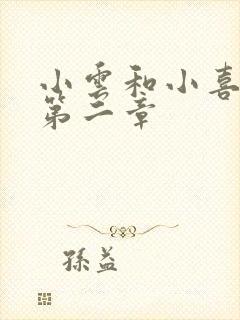 小雲和小喜
第二章
孫益